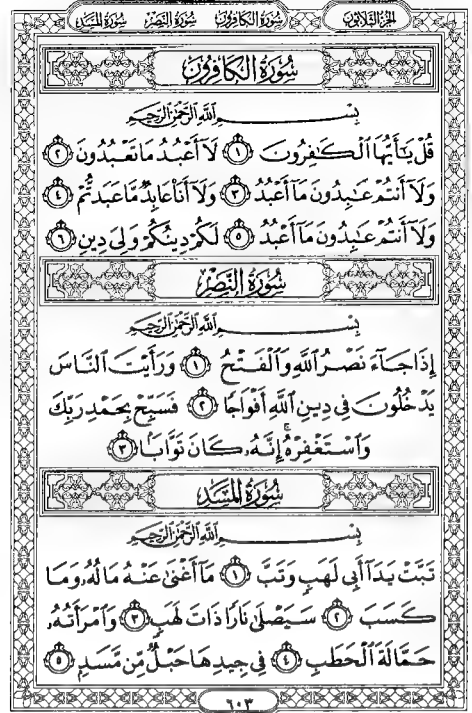 الجزء الثلاثون سورة الكافرون سورة النصر سورة المسد
سُورَةُ الْكَافِرُونَ
بِسْمِ اللَّهِ الرَّحْمَٰنِ الرَّحِيمِ
قُلْ يَٰٓأَيُّهَا ٱلْكَٰفِرُونَ ١ لَآ أَعْبُدُ مَا تَعْبُدُونَ ٢
وَلَآ أَنتُمْ عَٰبِدُونَ مَآ أَعْبُدُ ٣ وَلَآ أَنَا۠ عَابِدٌ مَّا عَبَدتُّمْ ٤
وَلَآ أَنتُمْ عَٰبِدُونَ مَآ أَعْبُدُ ٥ لَكُمْ دِينُكُمْ وَلِىَ دِينِ ٦
سُورَةُ النَّصْرِ
بِسْمِ اللَّهِ الرَّحْمَٰنِ الرَّحِيمِ
إِذَا جَآءَ نَصْرُ ٱللَّهِ وَٱلْفَتْحُ ١ وَرَأَيْتَ ٱلنَّاسَ
يَدْخُلُونَ فِى دِينِ ٱللَّهِ أَفْوَاجًا ٢ فَسَبِّحْ بِحَمْدِ رَبِّكَ
وَٱسْتَغْفِرْهُ ۚ إِنَّهُۥ كَانَ تَوَّابًۢا ٣
سُورَةُ الْمَسَدِ
بِسْمِ اللَّهِ الرَّحْمَٰنِ الرَّحِيمِ
تَبَّتْ يَدَآ أَبِى لَهَبٍ وَتَبَّ ١ مَآ أَغْنَىٰ عَنْهُ مَالُهُۥ وَمَا
كَسَبَ ٢ سَيَصْلَىٰ نَارًا ذَاتَ لَهَبٍ ٣ وَٱمْرَأَتُهُۥ
حَمَّالَةَ ٱلْحَطَبِ ٤ فِى جِيدِهَا حَبْلٌ مِّن مَّسَدٍۭ ٥
٦٠٣